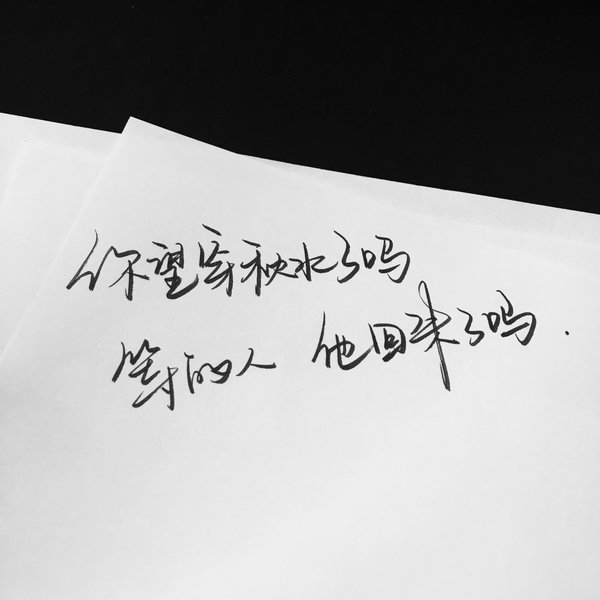 你望穿秋水了吗
等的人 他回来了吗.